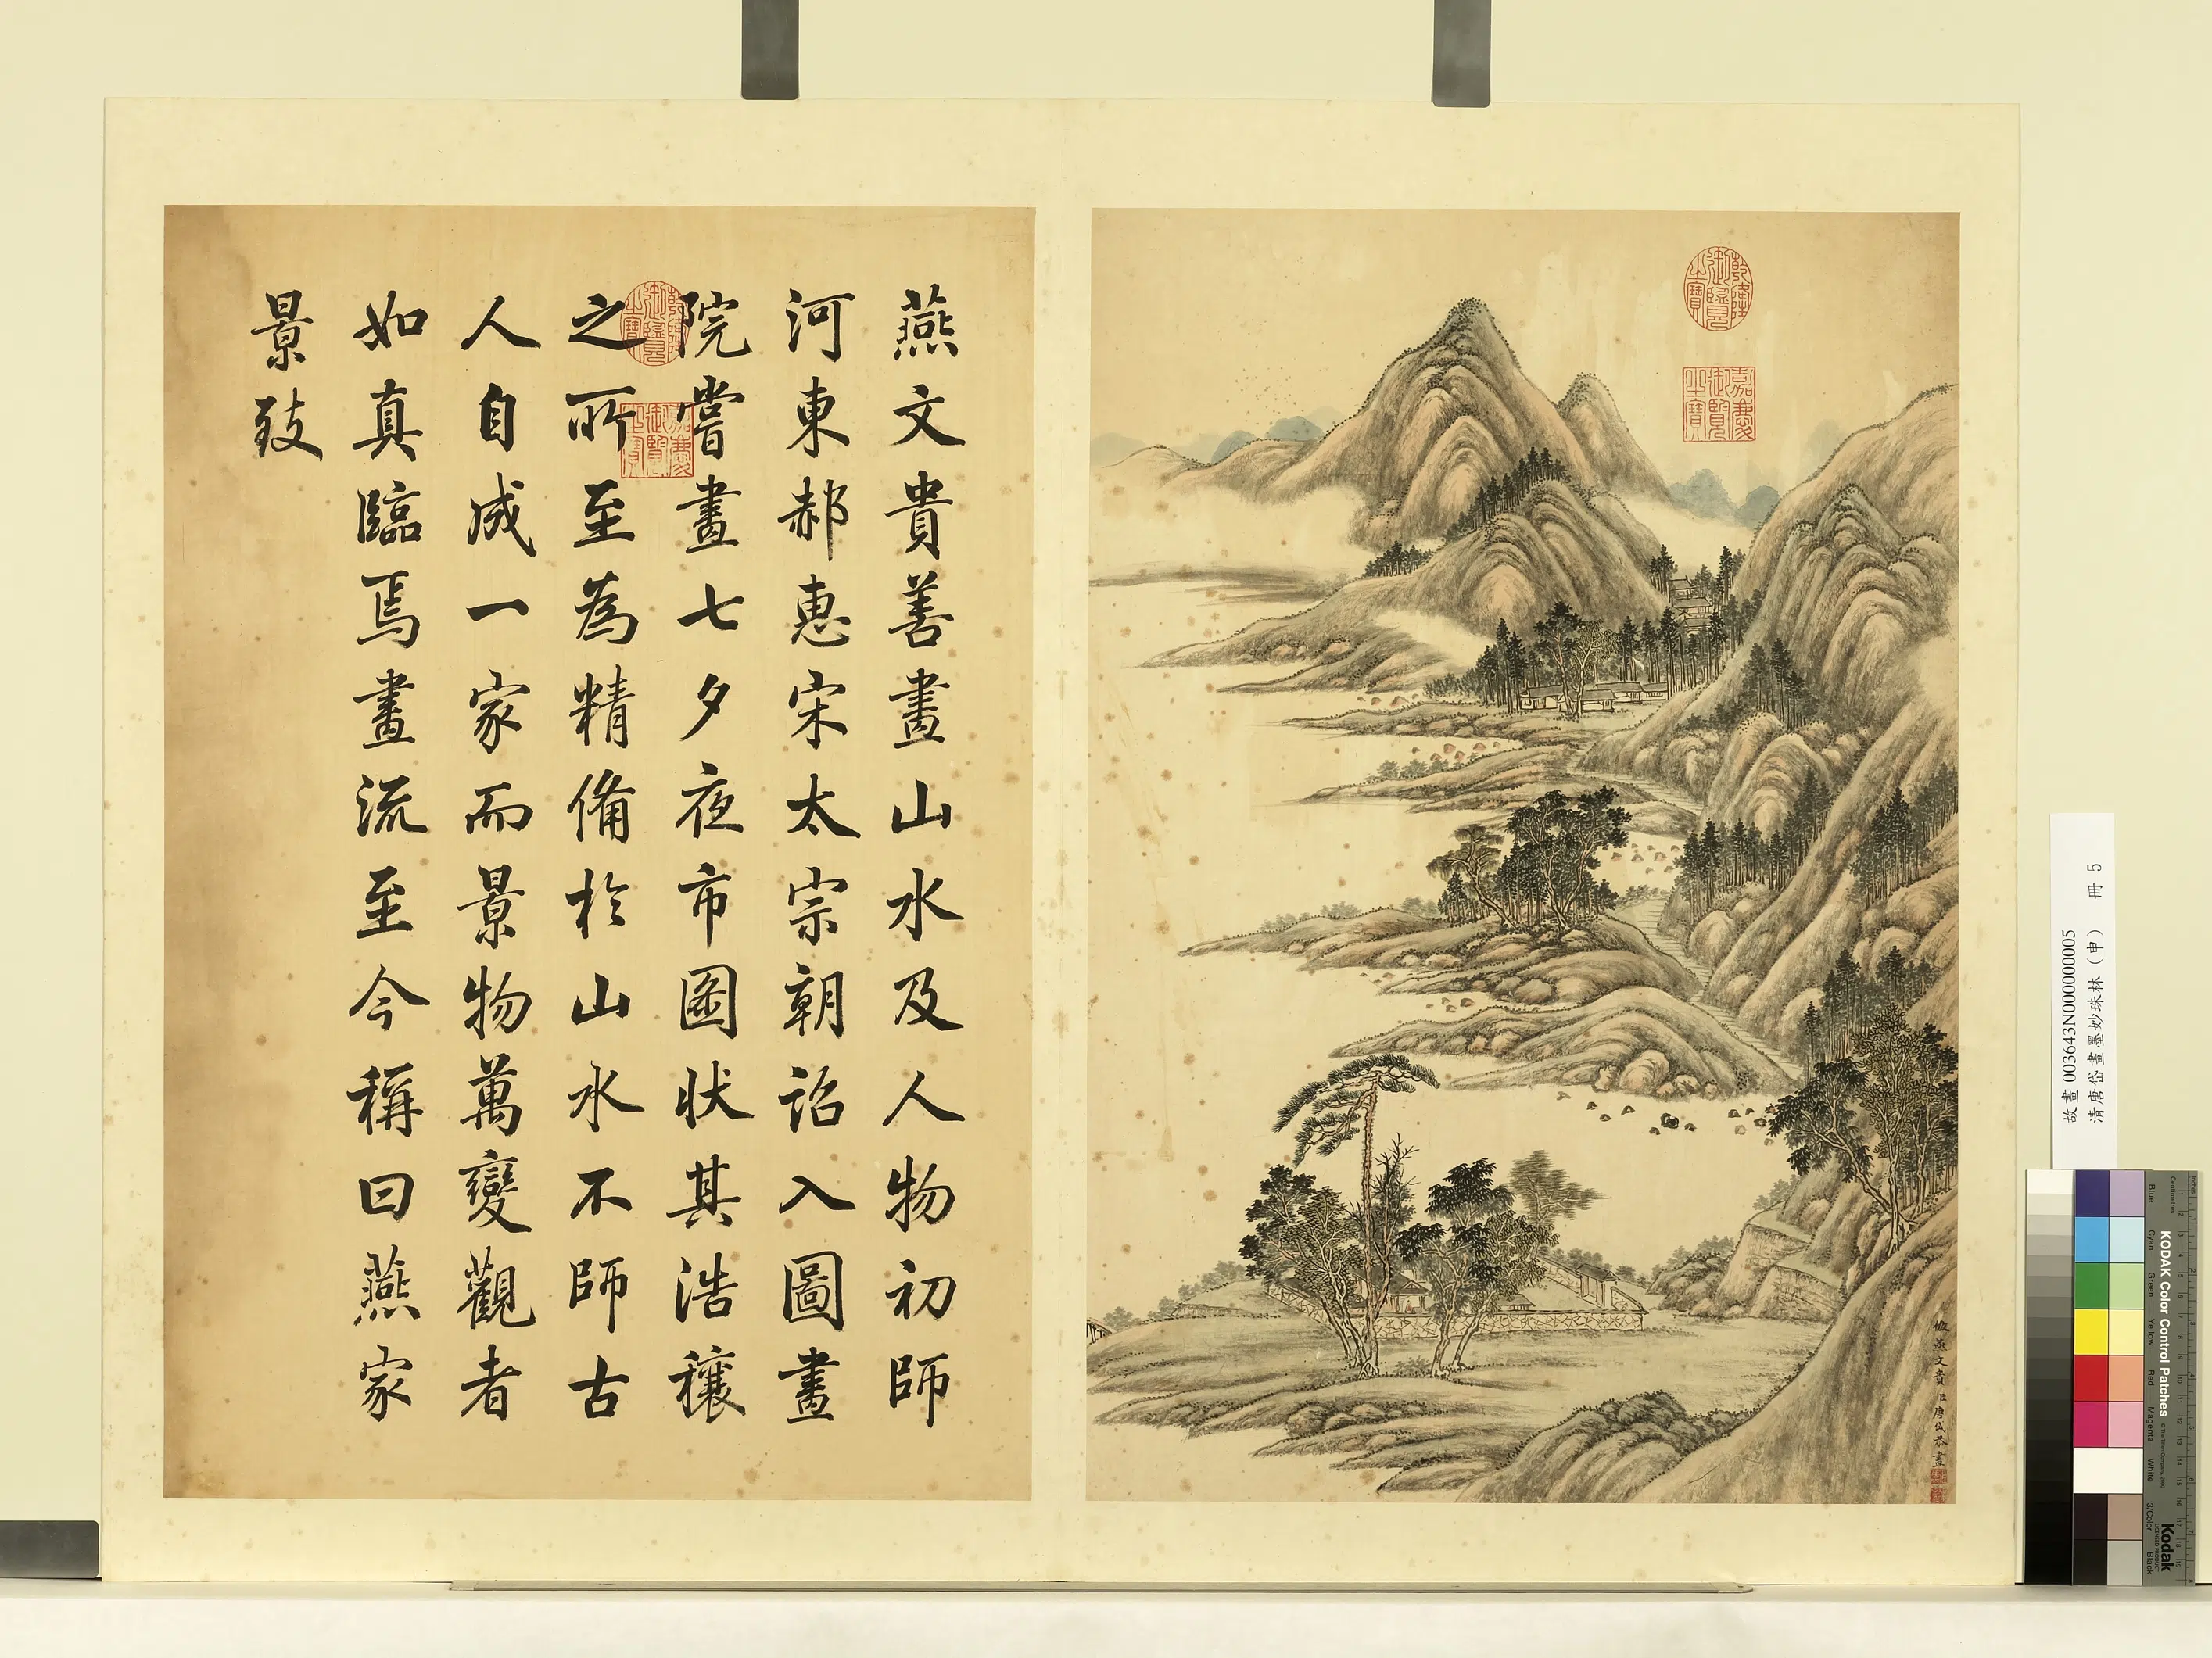 燕文貴善畫山水及人物初師
河東郝惠宋太宗朝詔入圖畫
院嘗畫七夕夜市圖狀其浩穰
之所至為精備於山水不師古
人自成一家而景物萬變觀者
如真臨焉畫流至今稱曰燕家
景致
乾隆御覽之寶
嘉慶御覽之寶
乾隆御覽之寶
嘉慶御覽之寶
倣燕文貴臣唐岱恭畫
故畫 003643N000000005
清唐岱畫墨妙珠林（申） 冊 5
KODAK Color Control Patches
Blue Cyan Green Yellow Red Magenta White 3/Color Black
Centimetres
Inches
Kodak